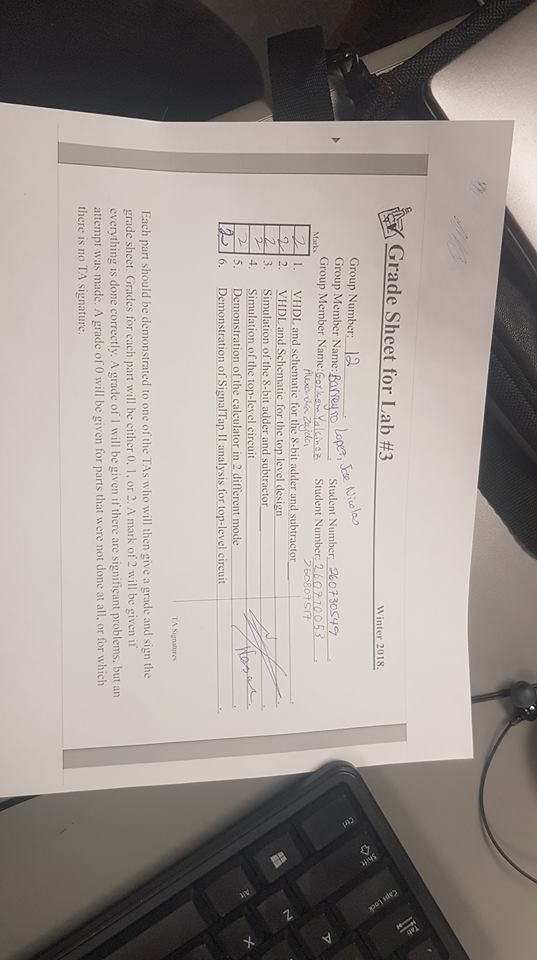 Grade Sheet for Lab #3
Winter 2018.
Group Number: 12
Group Member Name: Barreyro Lopez, Jose Nicolas Student Number: 260730549
Group Member Name: Gorkem Yalcinoz Student Number: 260710053
260809517
Marks
2 1. VHDL and schematic for the 8-bit adder and subtractor
2 2. VHDL and Schematic for the top level design
2 3. Simulation of the 8-bit adder and subtractor
2 4. Simulation of the top-level circuit
2 5. Demonstration of the calculator in 2 different mode
2 6. Demonstration of SignalTap II analysis for top-level circuit
TA Signatures
Each part should be demonstrated to one of the TAs who will then give a grade and sign the
grade sheet. Grades for each part will be either 0, 1, or 2. A mark of 2 will be given if
everything is done correctly. A grade of 1 will be given if there are significant problems, but an
attempt was made. A grade of 0 will be given for parts that were not done at all, or for which
there is no TA signature.
Tab
Caps Lock
Shift
Ctrl
A
Z
X
Alt